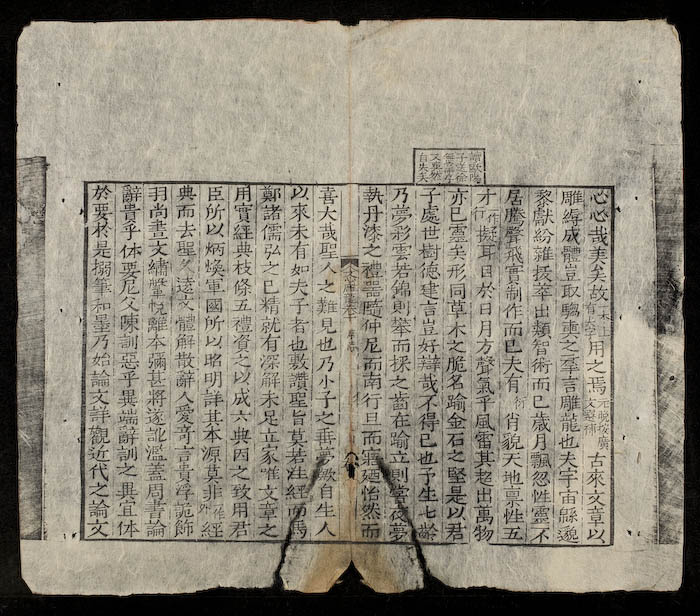 讀歐陽
子送徐
無黨序
又爽然
自失矣
心心哉美矣故本上有夫字用之焉元脫按廣文選補古來文章以
雕縟成體豈取騶奭之羣言雕龍也夫宇宙緜邈
黎獻紛雜拔萃出類智術而已歲月飄忽性靈不
居騰聲飛實制作而已夫有衍肖貌天地稟性五
才一作行擬耳目於日月方聲氣乎風雷其超出萬物
亦已靈矣形同草木之脆名踰金石之堅是以君
子處世樹德建言豈好辯哉不得已也予生七齡
乃夢彩雲若錦則攀而採之齒在踰立則嘗夜夢
執丹漆之禮器隨仲尼而南行旦而寤廼怡然而
喜大哉聖人之難見也乃小子之垂夢歟自生人
以來未有如夫子者也敷讚聖旨莫若注經而馬
鄭諸儒弘之已精就有深解未足立家唯文章之
用實經典枝條五禮資之以成六典因之致用君
臣所以炳煥軍國所以昭明詳其本源莫非作外經
典而去聖久遠文體解散辭人愛奇言貴浮詭飾
羽尚畫文繡鞶帨離本彌甚將遂訛濫蓋周書論
辭貴乎体要尼父陳訓惡乎異端辭訓之異宜体
於要於是搦筆和墨乃始論文詳觀近代之論文